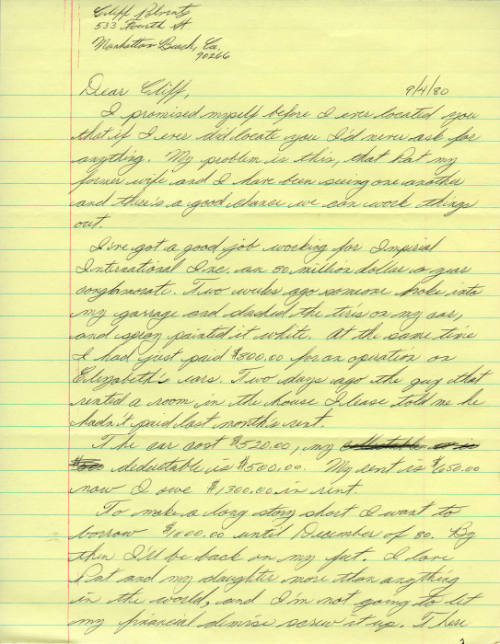 Cliff
533 Fourth St.
Manhattan Beach, Ca.
90266
Dear Cliff,
9/4/80
I promised myself before I ever located you
that if I ever did locate you I'd never ask for
anything. My problem is this, that Pat my
former wife and I have been seeing one another
and there's a good chance we can work things
out.
I've got a good job working for Imperial
International Inc, an 80 million dollar a year
conglomerate. Two weeks ago someone broke into
my garrage and slashed the tires on my car,
and spray painted it white. At the same time
I had just paid $800.00 for an operation on
Elizabeth's ears. Two days ago the guy that
rented a room in the house I lease told me he
hadn't paid last month's rent.
The car cost $520.00, my
deductable is $500.00. My rent is $650.00
now I owe $1300.00 in rent.
To make a long story short I want to
borrow $1000.00 until December of 80. By
then I'll be back on my feet. I love
Pat and my daughter more than anything
in the world, and I'm not going to let
my financial demise screw it up. There